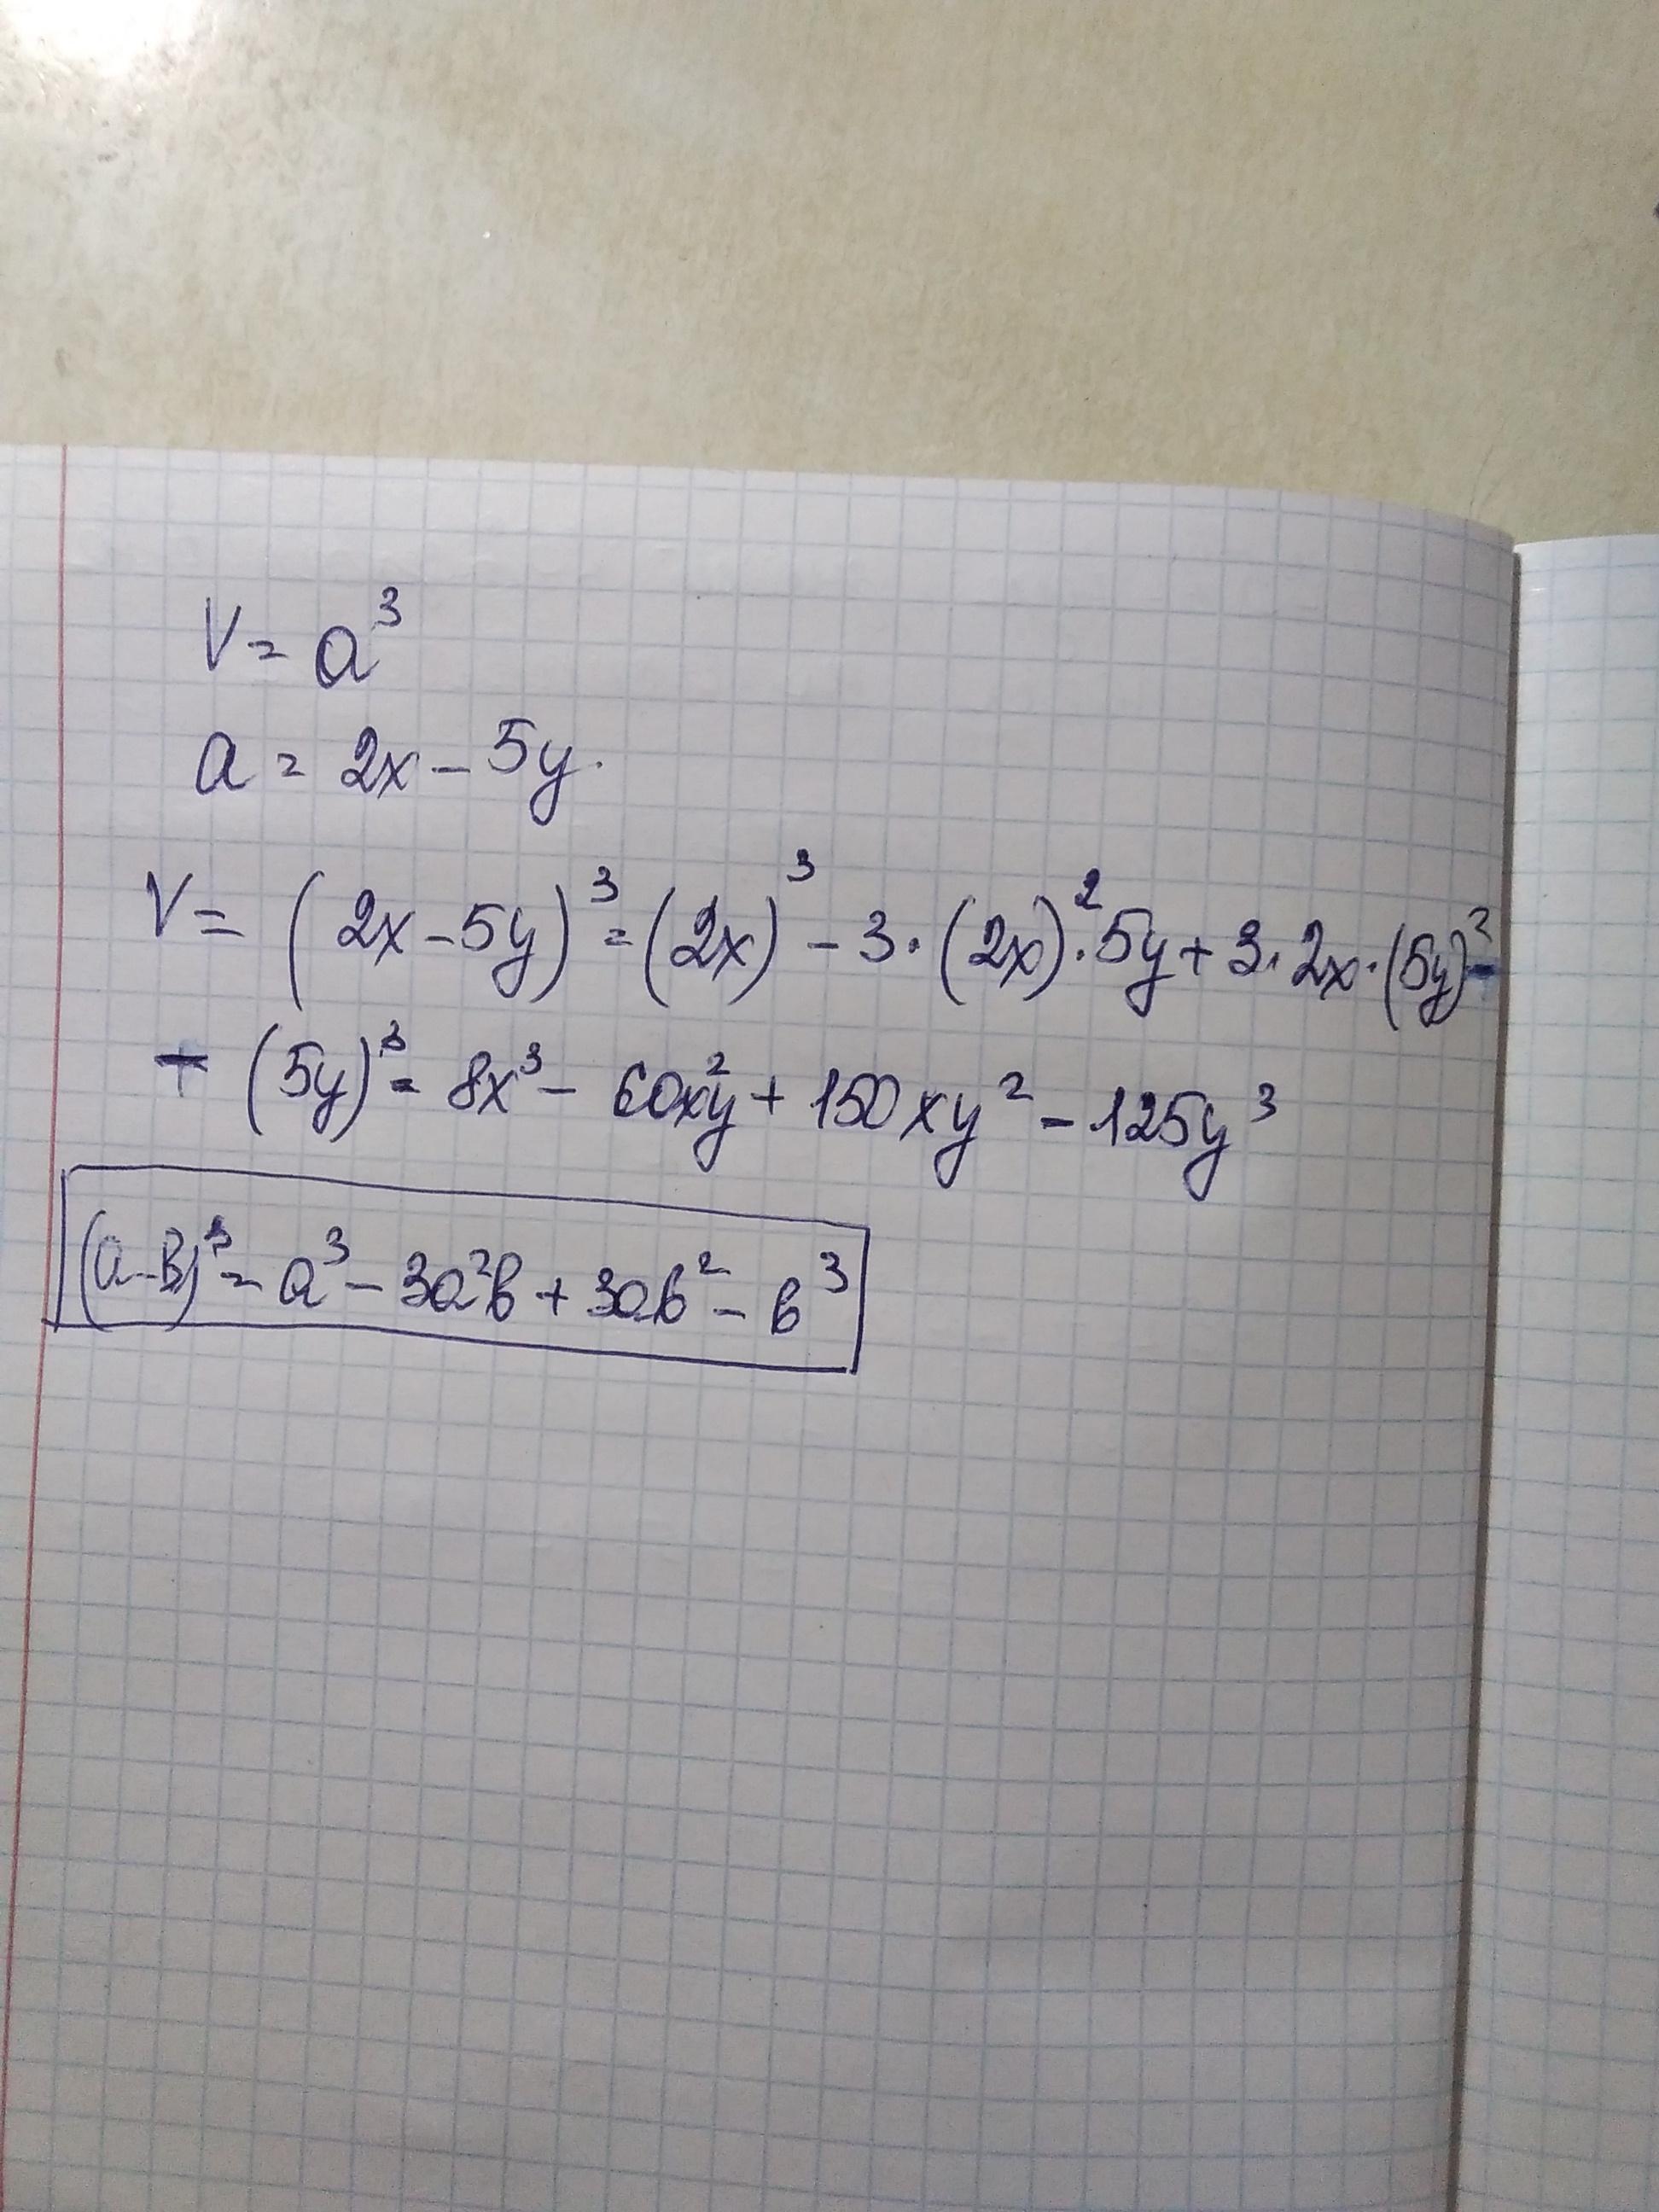 V = a³
a = 2x - 5y.
V = (2x - 5y)³ = (2x)³ - 3·(2x)²·5y + 3·2x·(5y)² -
- (5y)³ = 8x³ - 60x²y + 150xy² - 125y³
(a-в)³ = a³ - 3a²в + 3aв² - в³